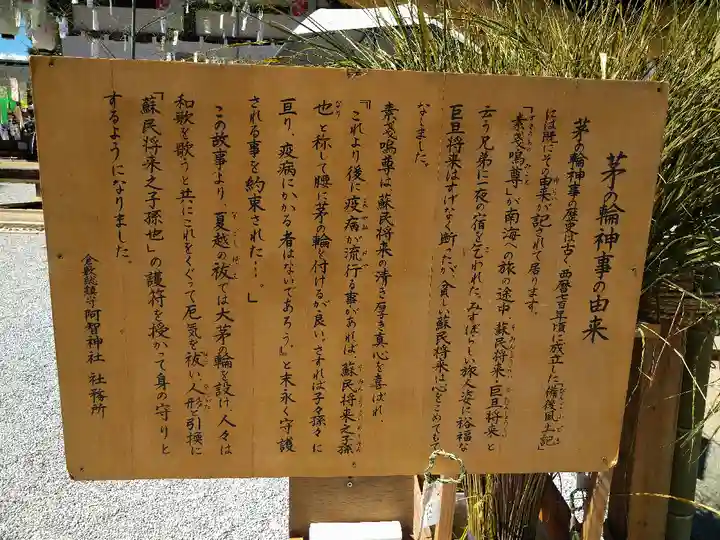 茅の輪神事の由来
茅の輪神事の歴史は古く、西暦七百年頃に成立した「備後風土記」
には既にその由来が記されて居ります。
「素戔嗚尊」が南海への旅の途中、蘇民将来・巨旦将来と
云う兄弟に一夜の宿を乞われた。みすぼらしい旅人姿に裕福な
巨旦将来はすげなく断ったが、貧しい蘇民将来は心をこめてもて
なしました。
素戔嗚尊は、蘇民将来の清き厚き真心を喜ばれ、
『これより後に疫病が流行る事があれば、蘇民将来之子孫
也と称して腰に茅の輪を付けるが良い。さすれば子々孫々に
亘り、疫病にかかる者はないであろう』と末永く守護
される事を約束された…。」
この故事より、夏越の祓では大茅の輪を設け、人々は
和歌を歌うと共にこれをくぐって厄気を祓い、人形を引換に
「蘇民将来之子孫也」の護符を授かって身の守りと
するようになりました。
倉敷総鎮守 阿智神社 社務所